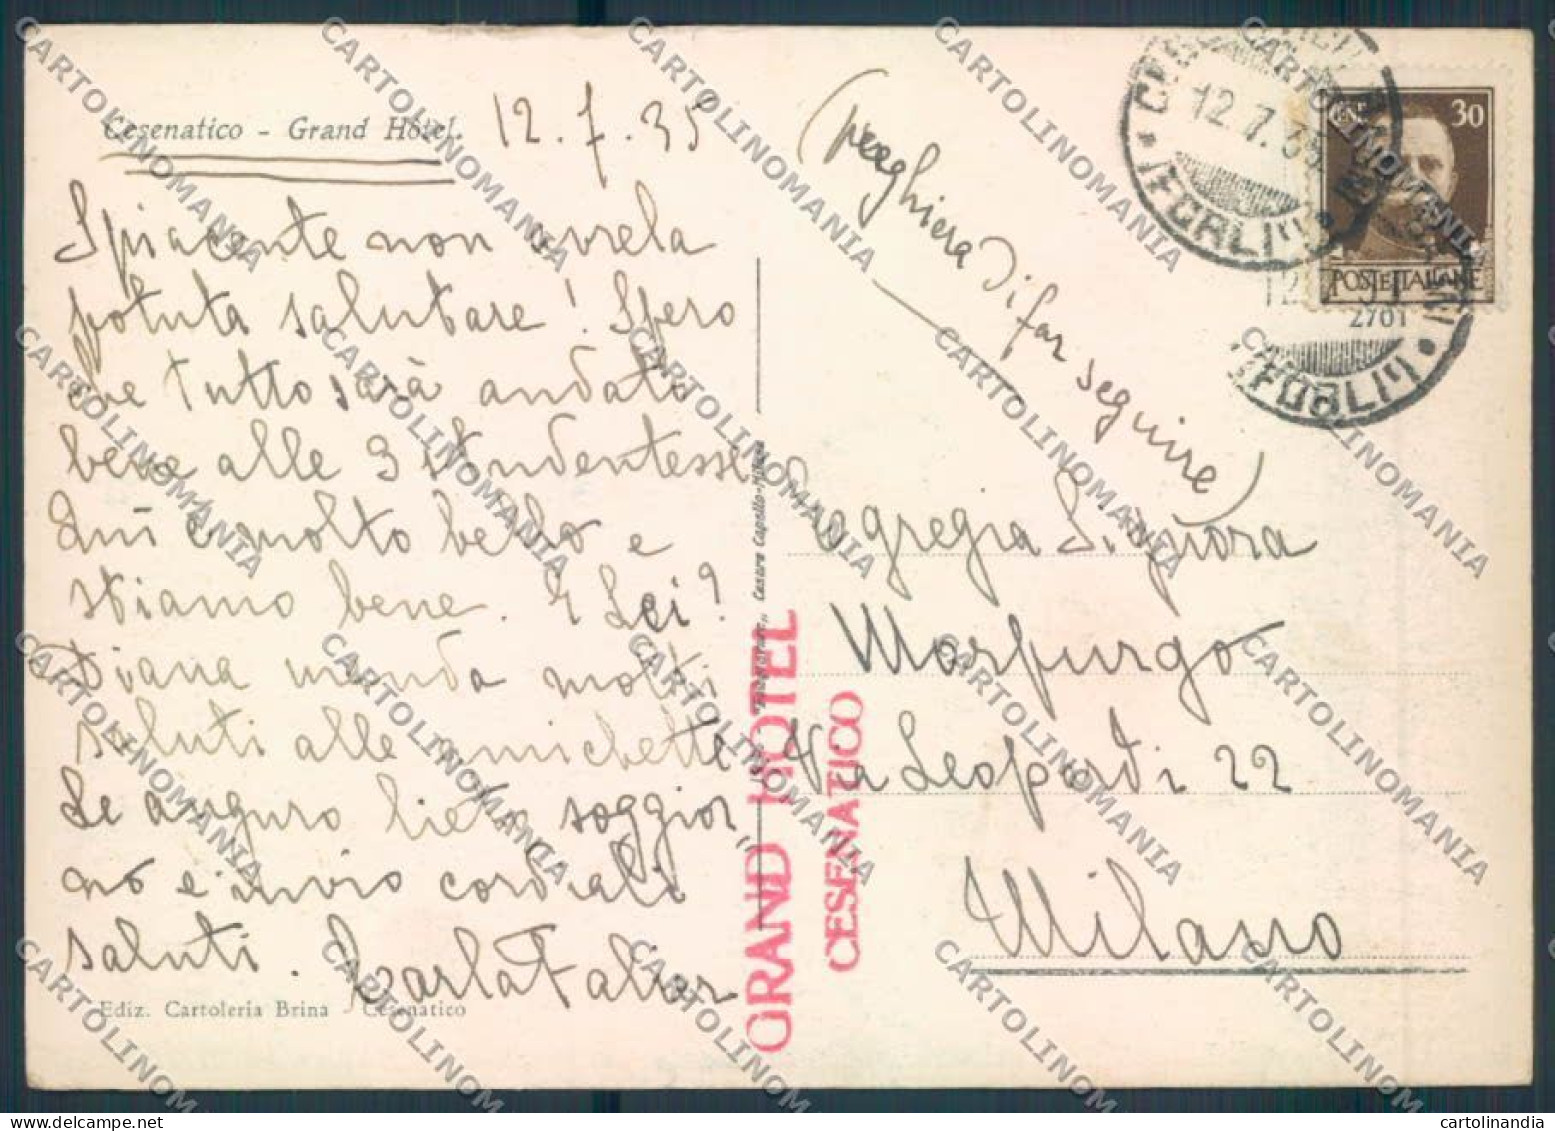 Cesenatico - Grand Hôtel.
12.7.35
Spiacente non averla
potuta salutare! Spero
che tutto sarà andato
bene alle 3 studentesse
Qui è molto bello e
stiamo bene. E Lei?
Diana manda molti
saluti alle amichette
Le auguro lieto soggior„
no e invio cordiali
saluti.
Ediz. Cartoleria Brina - Cesenatico
GRAND HOTEL
CESENATICO
(preghiera di far seguire)
12.7.35
(FORLI)
CEN. 30
POSTE ITALIANE
2701
(FORLI)
Egregia Signora
Morpurgo
Via Leopardi 22
Milano
CARTOLINOMANIA
cartolinandia